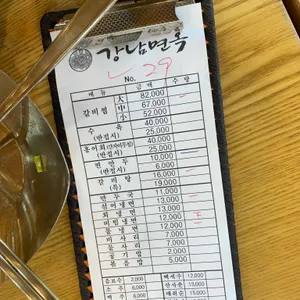 강남면옥
No. 29
메뉴 금액 수량
갈비찜 大 82,000
中 67,000
小 52,000
수육 40,000
(반접시) 25,000
홍어회 40,000
(반접시) 25,000
찐만두 10,000
(반접시) 6,000
갈비탕 16,000
(특) 19,000
만두국 11,000
섞어냉면 13,000
회냉면 13,000
비빔냉면 12,000
물냉면 12,000
사리 7,000
공기밥 2,000
볶음밥 5,000
음료수 2,000 백세주 12,000
소주 6,000 산사춘 13,000
맥주 6,000 매취순